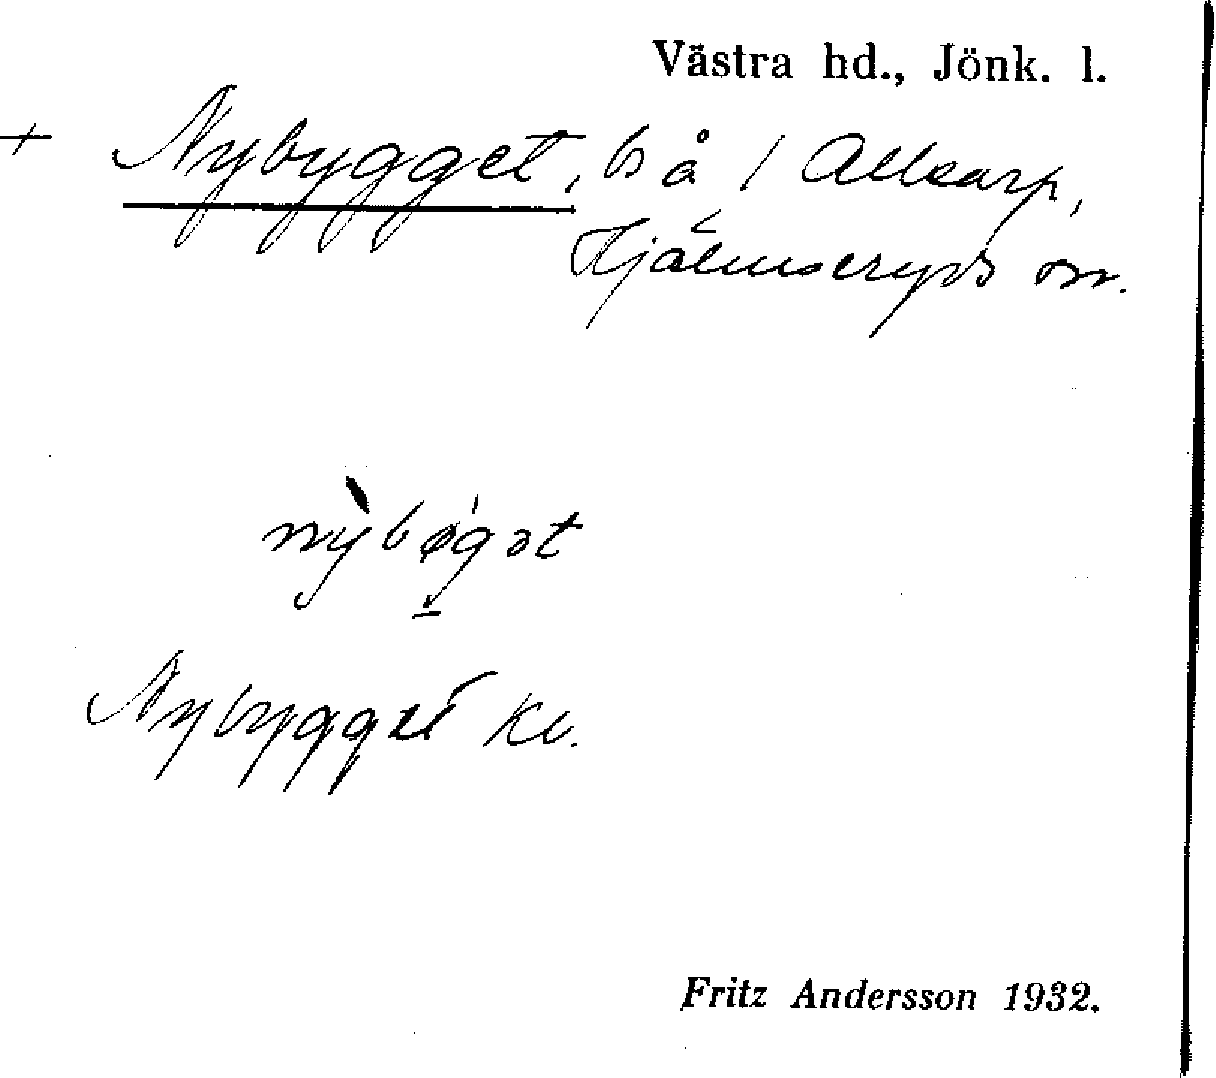 Västra hd., Jönk. l.
+ Nybygget, bs å 1 Allsarp,
Hjälmseryds sn.
nỳbøgət
Nybygget
Fritz Andersson 1932.